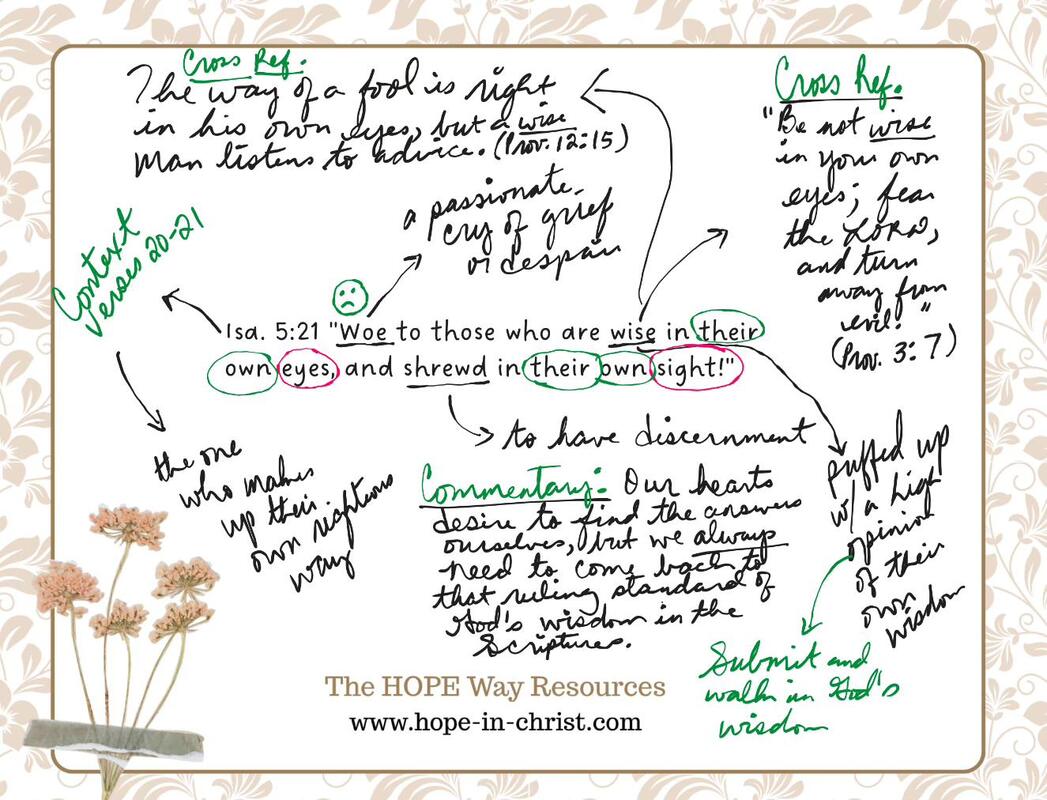 Cross Ref.
The way of a fool is right
in his own eyes, but a wise
man listens to advice. (Prov. 12:15)
Cross Ref.
"Be not wise
in your own
eyes; fear
the LORD,
and turn
away from
evil."
(Prov. 3:7)
a passionate
cry of grief
or despair
Context
verses 20-21
Isa. 5:21 "Woe to those who are wise in their
own eyes, and shrewd in their own sight!"
the one
who makes
up their
own righteous
way
to have discernment
puffed up
w/a high
opinion
of their
own
wisdom
Commentary: Our hearts
desire to find the answers
ourselves, but we always
need to come back to
that ruling standard of
God's wisdom in the
Scriptures.
Submit and
walk in God's
wisdom
The HOPE Way Resources
www.hope-in-christ.com